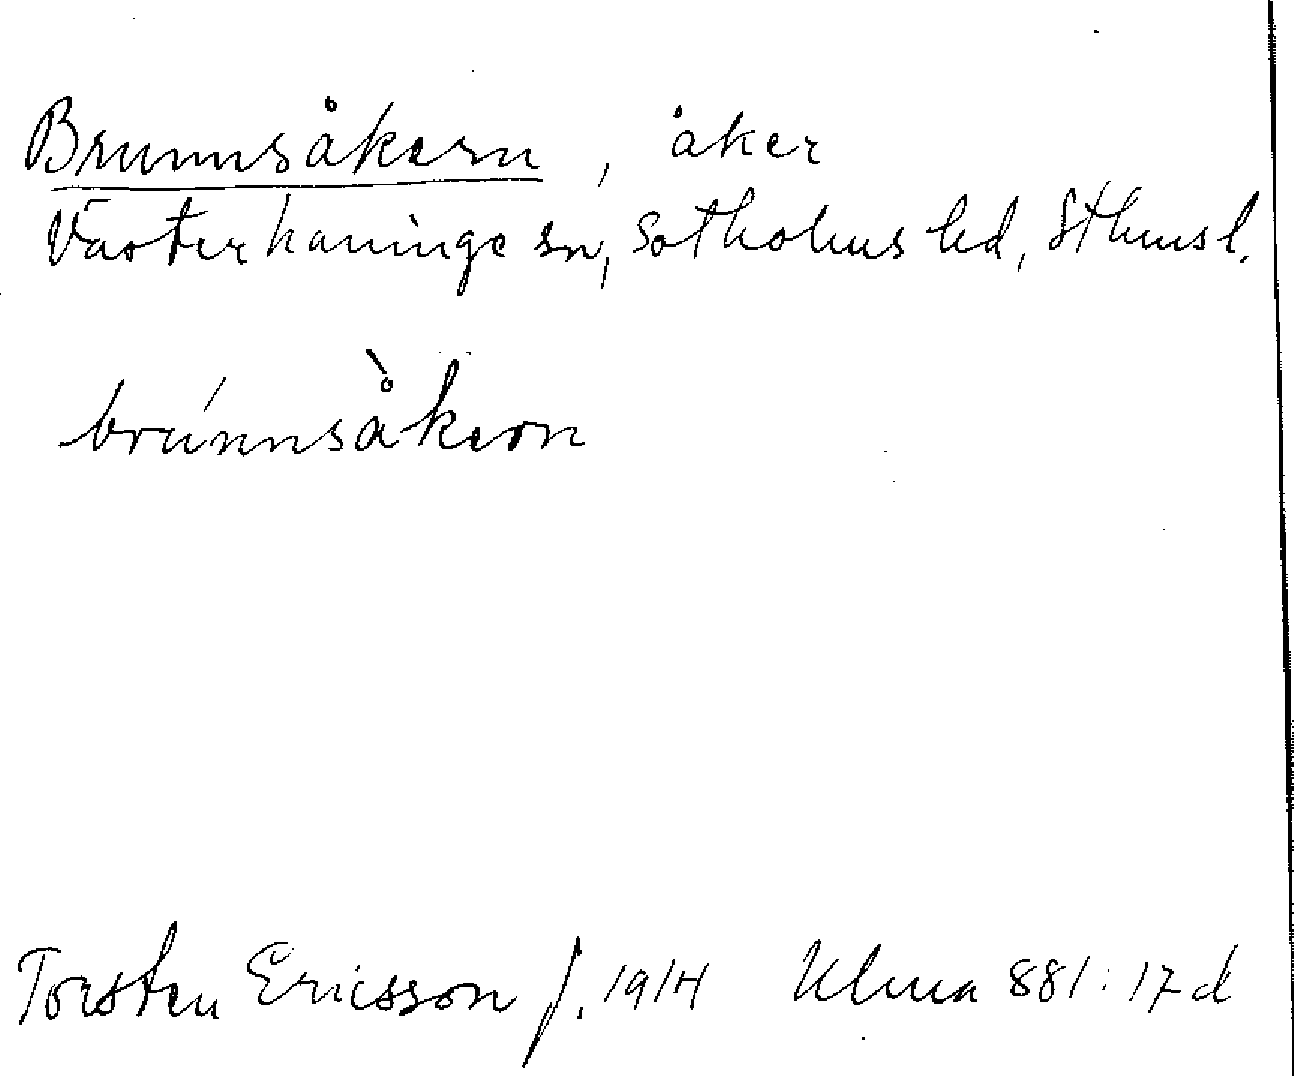 Brunnsåkern, åker
Västerhaninge sn, Sotholms hd, Sthms l.
brúnnså̀kern
Torsten Ericsson f. 1914 Ulma 881:17d